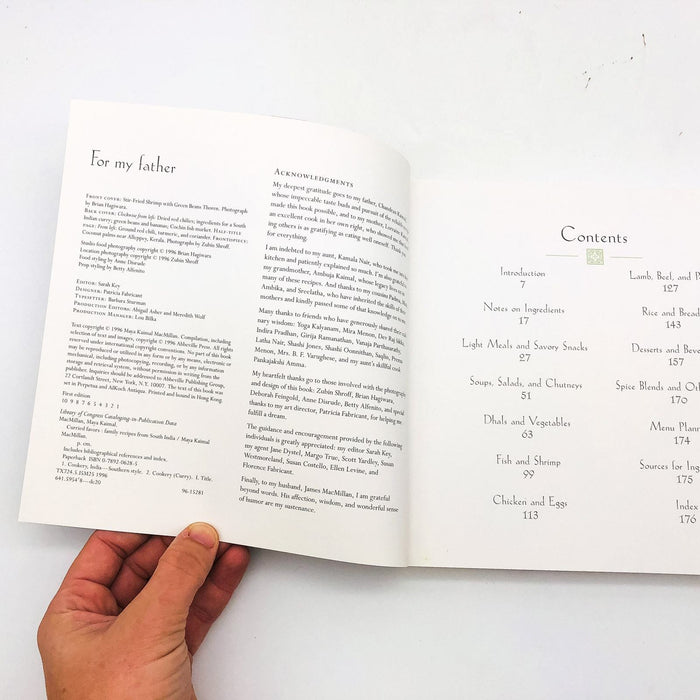 For my father
FRONT COVER: Stir-Fried Shrimp with Green Beans Thoren. Photograph
by Brian Hagiwara.
BACK COVER: Clockwise from left: Dried red chilies; ingredients for a South
Indian curry; green beans and hummus; Cochin fish market. HALF-TITLE
PAGE: From left: Ground red chili, turmeric, and coriander. FRONTISPIECE:
Coconut palms near Alleppey, Kerala. Photographs by Zubin Shroff.
Studio food photography copyright © 1996 Brian Hagiwara
Location photography copyright © 1996 Zubin Shroff
Food styling by Anne Disrude
Prop styling by Betty Alfenito
EDITOR: Sarah Key
DESIGNER: Patricia Fabricant
TYPESETTER: Barbara Sturman
PRODUCTION EDITORS: Abigail Asher and Meredith Wolf
PRODUCTION MANAGER: Lou Bilka
Text copyright © 1996 Maya Kaimal MacMillan. Compilation, including
selection of text and images, copyright © 1996 Abbeville Press. All rights
reserved under international copyright conventions. No part of this book
may be reproduced or utilized in any form or by any means, electronic or
mechanical, including photocopying, recording, or by any information
storage and retrieval system, without permission in writing from the
publisher. Inquiries should be addressed to Abbeville Publishing Group,
22 Cortlandt Street, New York, N.Y. 10007. The text of this book was
set in Perpetua and ArKoch Antiqua. Printed and bound in Hong Kong.
First edition
10 9 8 7 6 5 4 3 2 1
Library of Congress Cataloging-in-Publication Data
MacMillan, Maya Kaimal.
Curried favors : family recipes from South India / Maya Kaimal
MacMillan.
p. cm.
Includes bibliographical references and index.
Paperback ISBN 0-7892-0628-5
1. Cookery, India—Southern style. 2. Cookery (Curry). I. Title.
TX724.5.I5M25 1996
641.5954'8—dc20
96-15281
ACKNOWLEDGMENTS
My deepest gratitude goes to my father, Chandran Kaimal,
whose impeccable taste buds and pursuit of the
made this book possible, and to my mother, Lorraine
an excellent cook in her own right, who showed me that
ing others is as gratifying as eating well oneself. Thank you
for everything.
I am indebted to my aunt, Kamala Nair, who took me into her
kitchen and patiently explained so much. I'm also grateful to
my grandmother, Ambuja Kaimal, whose legacy lives on in
many of these recipes. And thanks to my cousins Padma,
Ambika, and Sreelatha, who have inherited the skills of their
mothers and kindly passed some of that knowledge on to me.
Many thanks to friends who have generously shared their culi-
nary wisdom: Yoga Kalyanam, Mira Menon, Dev Raj Sikka,
Indira Pradhan, Girija Ramanathan, Vanaja Parthasarathy,
Latha Nair, Shashi Jones, Shashi Oonnithan, Sajilio, Prema
Menon, Mrs. B. F. Varughese, and my aunt's skillful cook
Pankajakshi Amma.
My heartfelt thanks go to those involved with the photography
and design of this book: Zubin Shroff, Brian Hagiwara,
Deborah Feingold, Anne Disrude, Betty Alfenito, and special
thanks to my art director, Patricia Fabricant, for helping me
fulfill a dream.
The guidance and encouragement provided by the following
individuals is greatly appreciated: my editor Sarah Key,
my agent Jane Dystel, Margo True, Scott Yardley, Susan
Westmoreland, Susan Costello, Ellen Levine, and
Florence Fabricant.
Finally, to my husband, James MacMillan, I am grateful
beyond words. His affection, wisdom, and wonderful sense
of humor are my sustenance.
Contents
Introduction
7
Notes on Ingredients
17
Light Meals and Savory Snacks
27
Soups, Salads, and Chutneys
51
Dhals and Vegetables
63
Fish and Shrimp
99
Chicken and Eggs
113
Lamb, Beef, and P
127
Rice and Bread
143
Desserts and Beve
157
Spice Blends and Oth
170
Menu Plann
174
Sources for Ing
175
Index
176